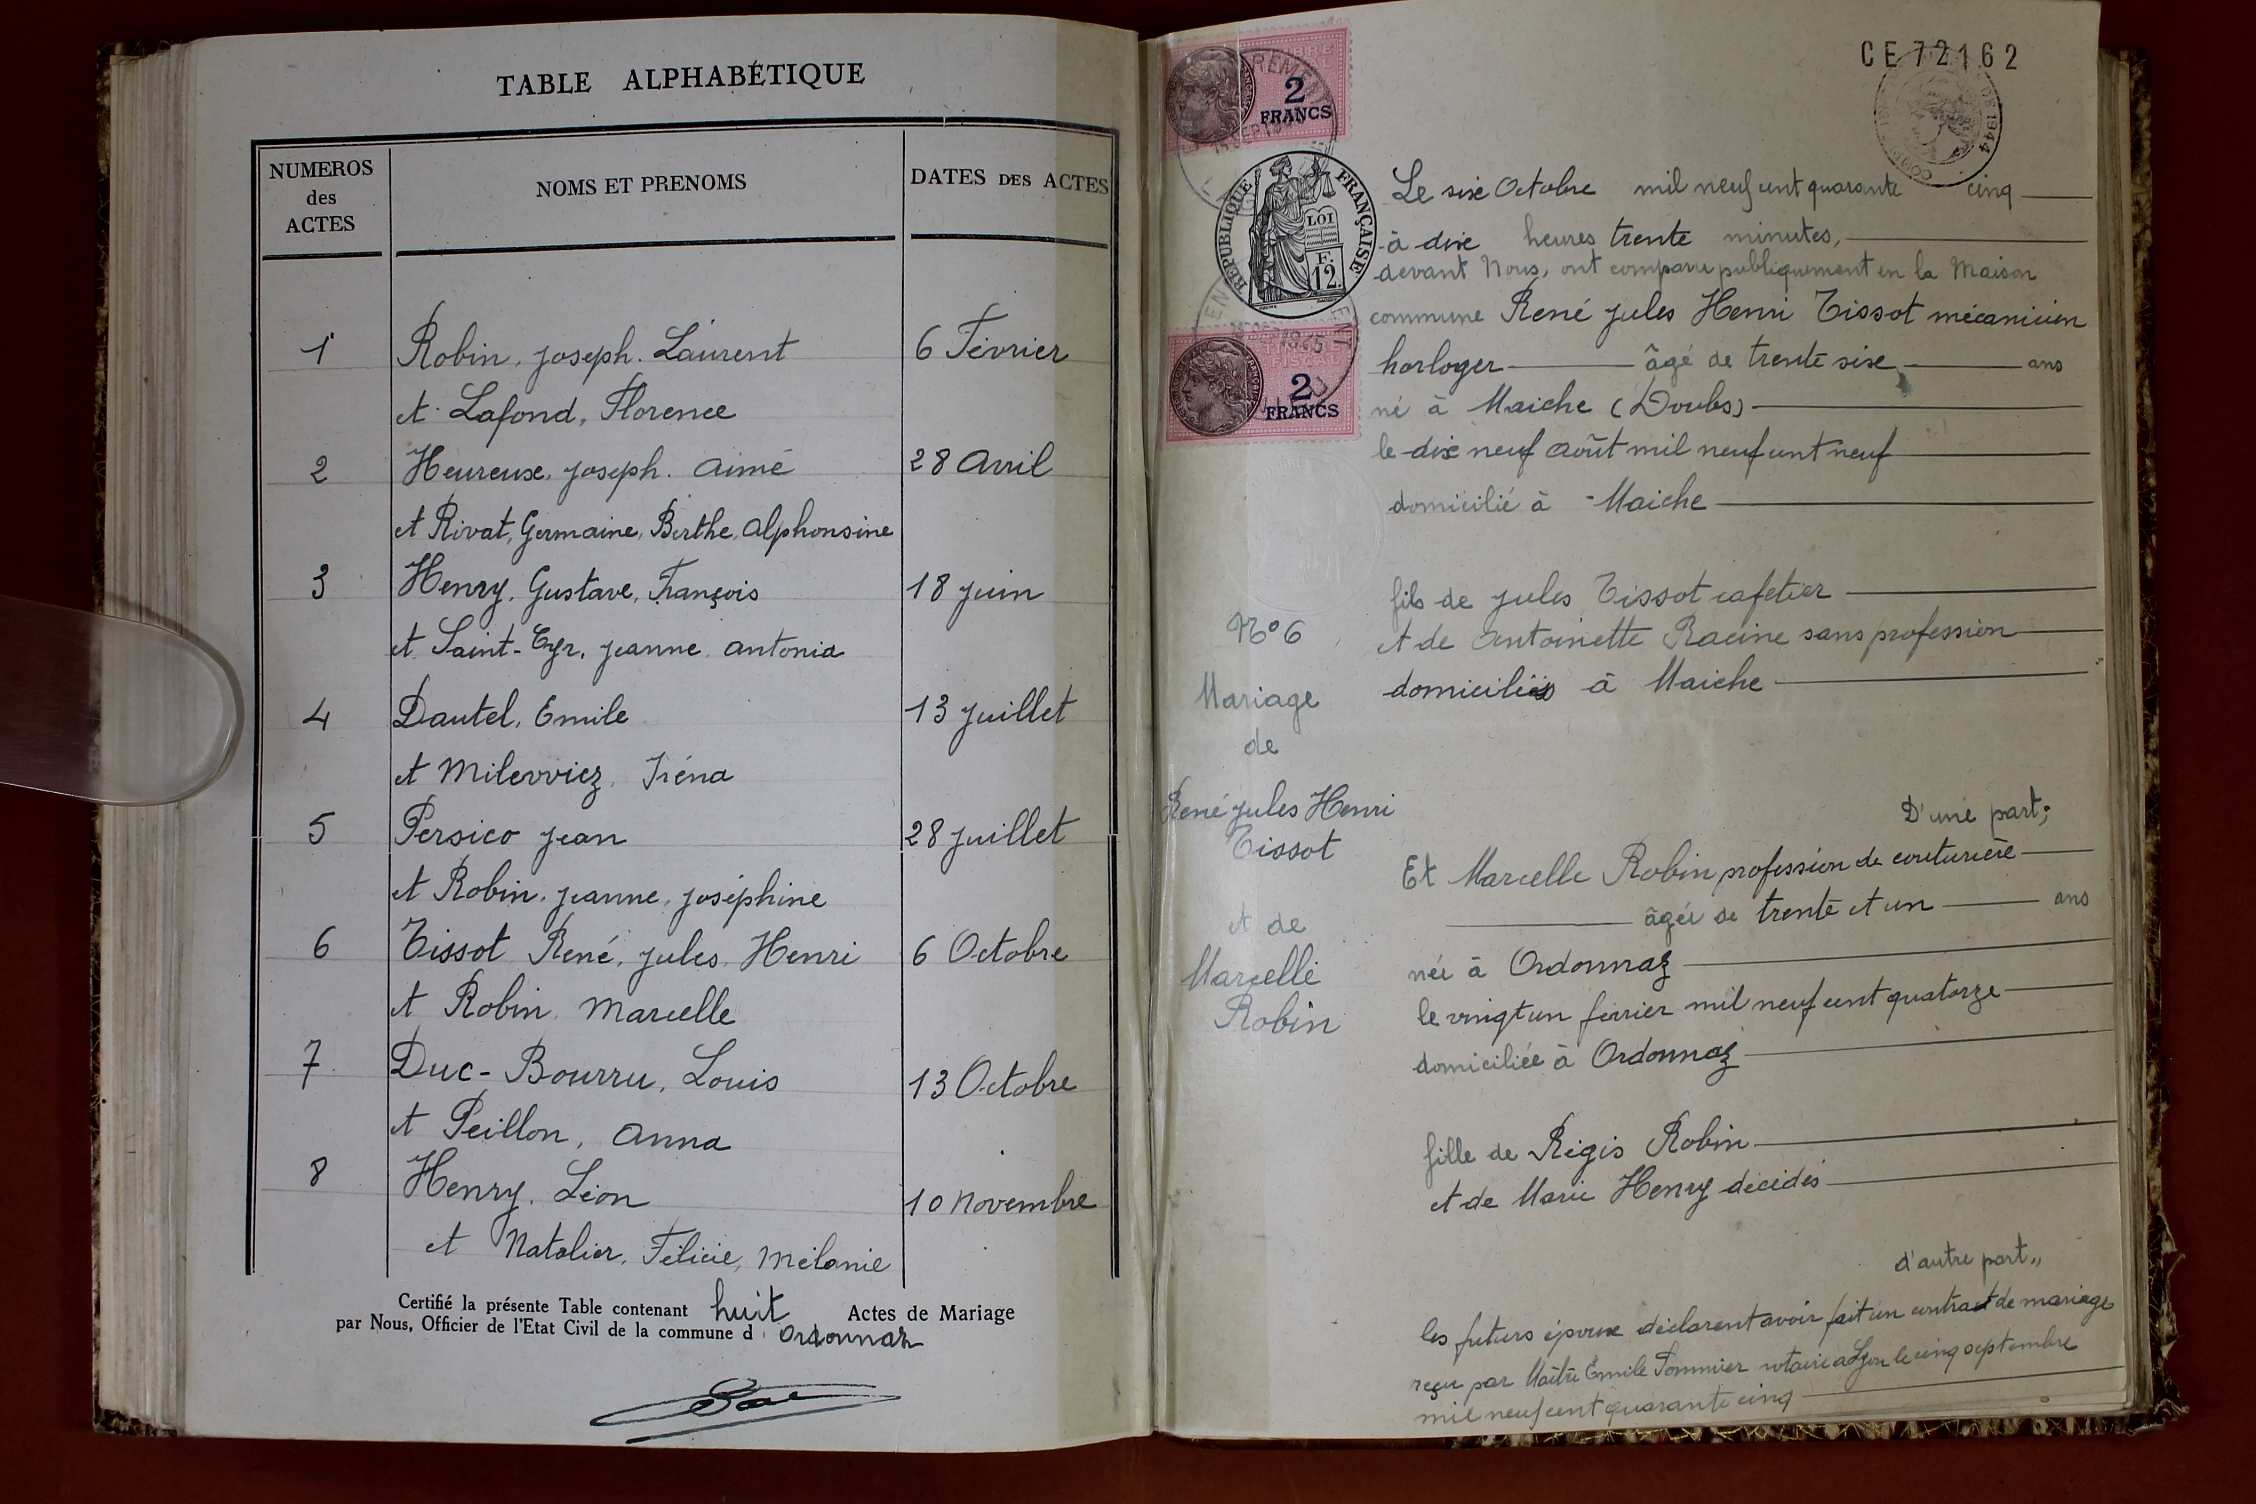 TABLE ALPHABÉTIQUE
NUMEROS
des
ACTES
NOMS ET PRENOMS
DATES DES ACTES
1 Robin, Joseph. Laurent 6 Février
et Lafond, Florence
2 Heureux, Joseph. Aimé 28 Avril
et Rivat, Germaine, Berthe, Alphonsine
3 Henry, Gustave, François 18 Juin
et Saint-Cyr, Jeanne Antonia
4 Dautel, Emile 13 Juillet
et Milevviez, Iréna
5 Persico Jean 28 Juillet
et Robin, Jeanne, Joséphine
6 Tissot René, Jules, Henri 6 Octobre
et Robin Marcelle
7 Duc-Bourru, Louis 13 Octobre
et Peillon, Anna
8 Henry, Léon 10 Novembre
et Natalier, Félicie, Mélanie
Certifié la présente Table contenant huit Actes de Mariage
par Nous, Officier de l'Etat Civil de la commune d Ordonnaz
2
FRANCS
RÉPUBLIQUE FRANÇAISE
LOI
F.
12.
2
FRANCS
N° 6
Mariage
de
René Jules Henri
Tissot
et de
Marcelle
Robin
CE 72162
DE 1944
Le six Octobre mil neuf cent quarante cinq
à dix heures trente minutes,
devant Nous, ont comparu publiquement en la Maison
commune René Jules Henri Tissot mécanicien
horloger âgé de trente six ans
né à Maiche (Doubs)
le dix neuf août mil neuf cent neuf
domicilié à Maiche
fils de Jules Tissot cafetier
et de Antoinette Racine sans profession
domiciliés à Maiche
D'une part;
Et Marcelle Robin profession de couturière
âgée de trente et un ans
née à Ordonnaz
le vingt un février mil neuf cent quatorze
domiciliée à Ordonnaz
fille de Régis Robin
et de Marie Henry décédés
d'autre part,,
les futurs époux déclarent avoir fait un contrat de mariage
reçu par Maître Emile Pommier notaire à Lyon le cinq septembre
mil neuf cent quarante cinq